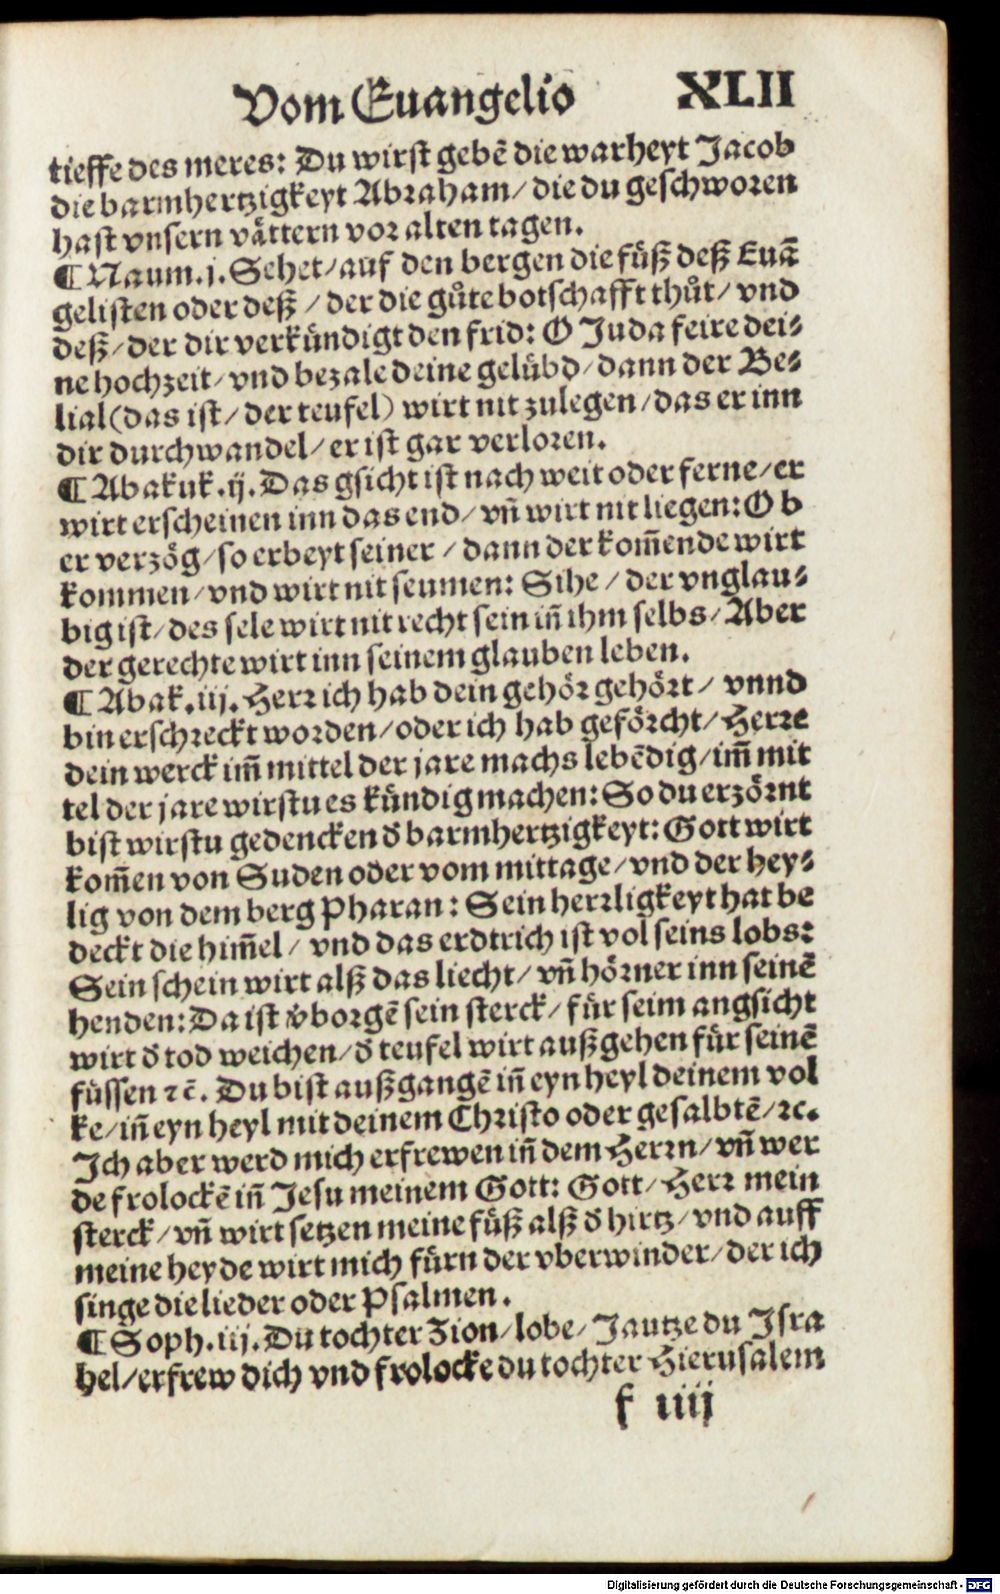 Vom Euangelio XLII
tieffe des meres: Du wirst gebē die warheyt Jacob
die barmhertzigkeyt Abraham/ die du geschworen
hast vnsern vättern vor alten tagen.
¶ Naum.j. Sehet/auf den bergen die füß deß Euā
gelisten oder deß / der die gůte botschafft thůt/ vnd
deß/der dir verkündigt den frid: O Juda feire dei⸗
ne hochzeit/vnd bezale deine gelübd/dann der Be⸗
lial(das ist/der teufel) wirt nit zulegen/das er inn
dir durchwandel/er ist gar verloren.
¶ Abakuk.ij. Das gsicht ist nach weit oder ferne/er
wirt erscheinen inn das end/vn̄ wirt nit liegen: Ob
er verzög/so erbeyt seiner / dann der kom̄ende wirt
kommen/vnd wirt nit seumen: Sihe / der vnglau⸗
big ist/des sele wirt nit recht sein in̄ ihm selbs/Aber
der gerechte wirt inn seinem glauben leben.
¶ Abak.iij. Herr ich hab dein gehör gehört/ vnnd
bin erschreckt worden/oder ich hab geförcht/Herre
dein werck im̄ mittel der jare machs lebēdig/im̄ mit
tel der jare wirstu es kündig machen: So du erzörnt
bist wirstu gedencken d̄ barmhertzigkeyt: Gott wirt
kom̄en von Suden oder vom mittage/vnd der hey⸗
lig von dem berg Pharan: Sein herrligkeyt hat be
deckt die him̄el/ vnd das erdtrich ist vol seins lobs:
Sein schein wirt alß das liecht/vn̄ hörner inn seinē
henden: Da ist v̄borgē sein sterck/für seim angsicht
wirt d̄ tod weichen/d̄ teufel wirt außgehen für seinē
füssen ꝛc̄. Du bist außgangē in̄ eyn heyl deinem vol
ke/in̄ eyn heyl mit deinem Christo oder gesalbtē/ꝛc.
Ich aber werd mich erfrewen in̄ dem Herrn/vn̄ wer
de frolockē in̄ Jesu meinem Gott: Gott/Herr mein
sterck/vn̄ wirt setzen meine füß alß d̄ hirtz/vnd auff
meine heyde wirt mich fürn der vberwinder/der ich
singe die lieder oder Psalmen.
¶ Soph.iij. Du tochter Zion/lobe/Jautze du Isra
hel/erfrew dich vnd frolocke du tochter Hierusalem
f iiij
Digitalisierung gefördert durch die Deutsche Forschungsgemeinschaft - DFG